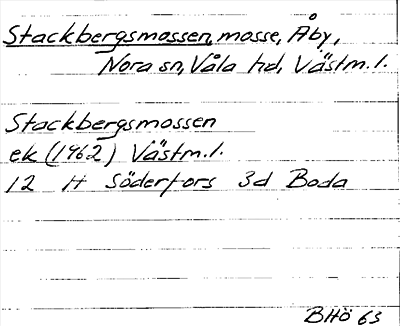 Stackbergsmossen, mosse, Åby,
Nora sn, Våla hd, Västm. l.
Stackbergsmossen
ek (1962) Västm. l.
12 H Söderfors 3d Boda
BHö 65